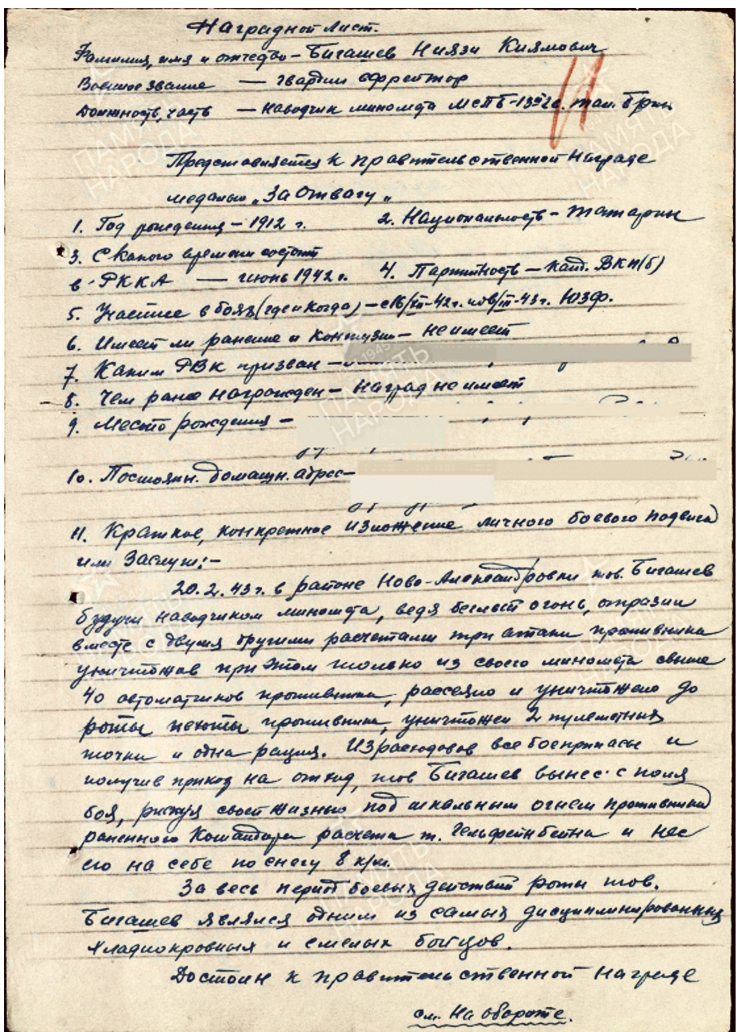 Наградной лист.
Фамилия, имя и отчество – Бигашев Ниязи Киямович
Военное звание — гвардии ефрейтор
Должность, часть — наводчик миномета МСПБ-13 гв. тан. бриг
Представляется к правительственной награде
медалью „За Отвагу„
1. Год рождения – 1912 г. 2. Национальность – татарин
3. С какого времени состоит
в РККА — июнь 1942 г. 4. Партийность – канд. ВКП(б)
5. Участие в боях (где и когда) – с 16/XII-42г. по /III-43г. ЮЗФ.
6. Имеет ли ранение и контузии – не имеет
7. Каким РВК призван –
8. Чем ранее награжден – Наград не имеет
9. Место рождения –
10. Постоян. домашн. адрес –
11. Краткое, конкретное изложение личного боевого подвига
или Заслуг:-
20.2.43г. в районе Ново-Александровки тов. Бигашев
будучи наводчиком миномета, ведя беглый огонь, отразил
вместе с двумя другими расчетами три атаки противника
уничтожив при этом только из своего миномета свыше
40 автоматчиков противника, рассеяно и уничтожено до
роты пехоты противника, уничтожен 2 пулеметных
точки и одна рация. Израсходовав все боеприпасы и
получив приказ на отход, тов Бигашев вынес с поля
боя, рискуя своей жизнью под шквальным огнем противника
раненного Командира расчета т. Гельфенбейна и нес
его на себе по снегу 8 км.
За весь период боевых действий роты тов.
Бигашев являлся одним из самых дисциплинированных
хладнокровных и смелых бойцов.
Достоин к правительственной награде
см. На обороте.
ПАМЯТЬ
НАРОДА